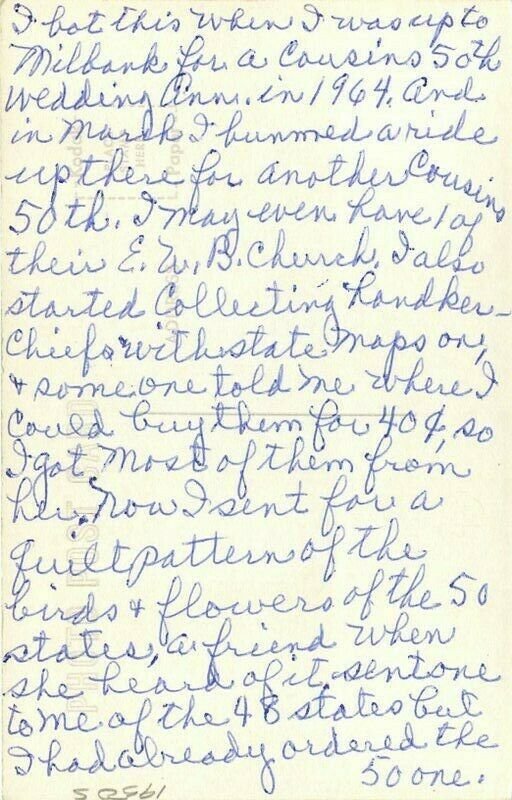 I bot this when I was up to
Milbank for a Cousins 50th
Wedding Ann. in 1964. And
in March I bummed a ride
up there for another Cousins
50th. I may even have 1 of
their E. U. B. Church. I also
started Collecting handker-
chiefs with state maps on,
& some one told me where I
could buy them for 40¢, so
I got most of them from
her. Now I sent for a
quilt pattern of the
birds & flowers of the 50
states, a friend when
she heard of it, sent one
to me of the 48 states but
I had already ordered the
50 one.